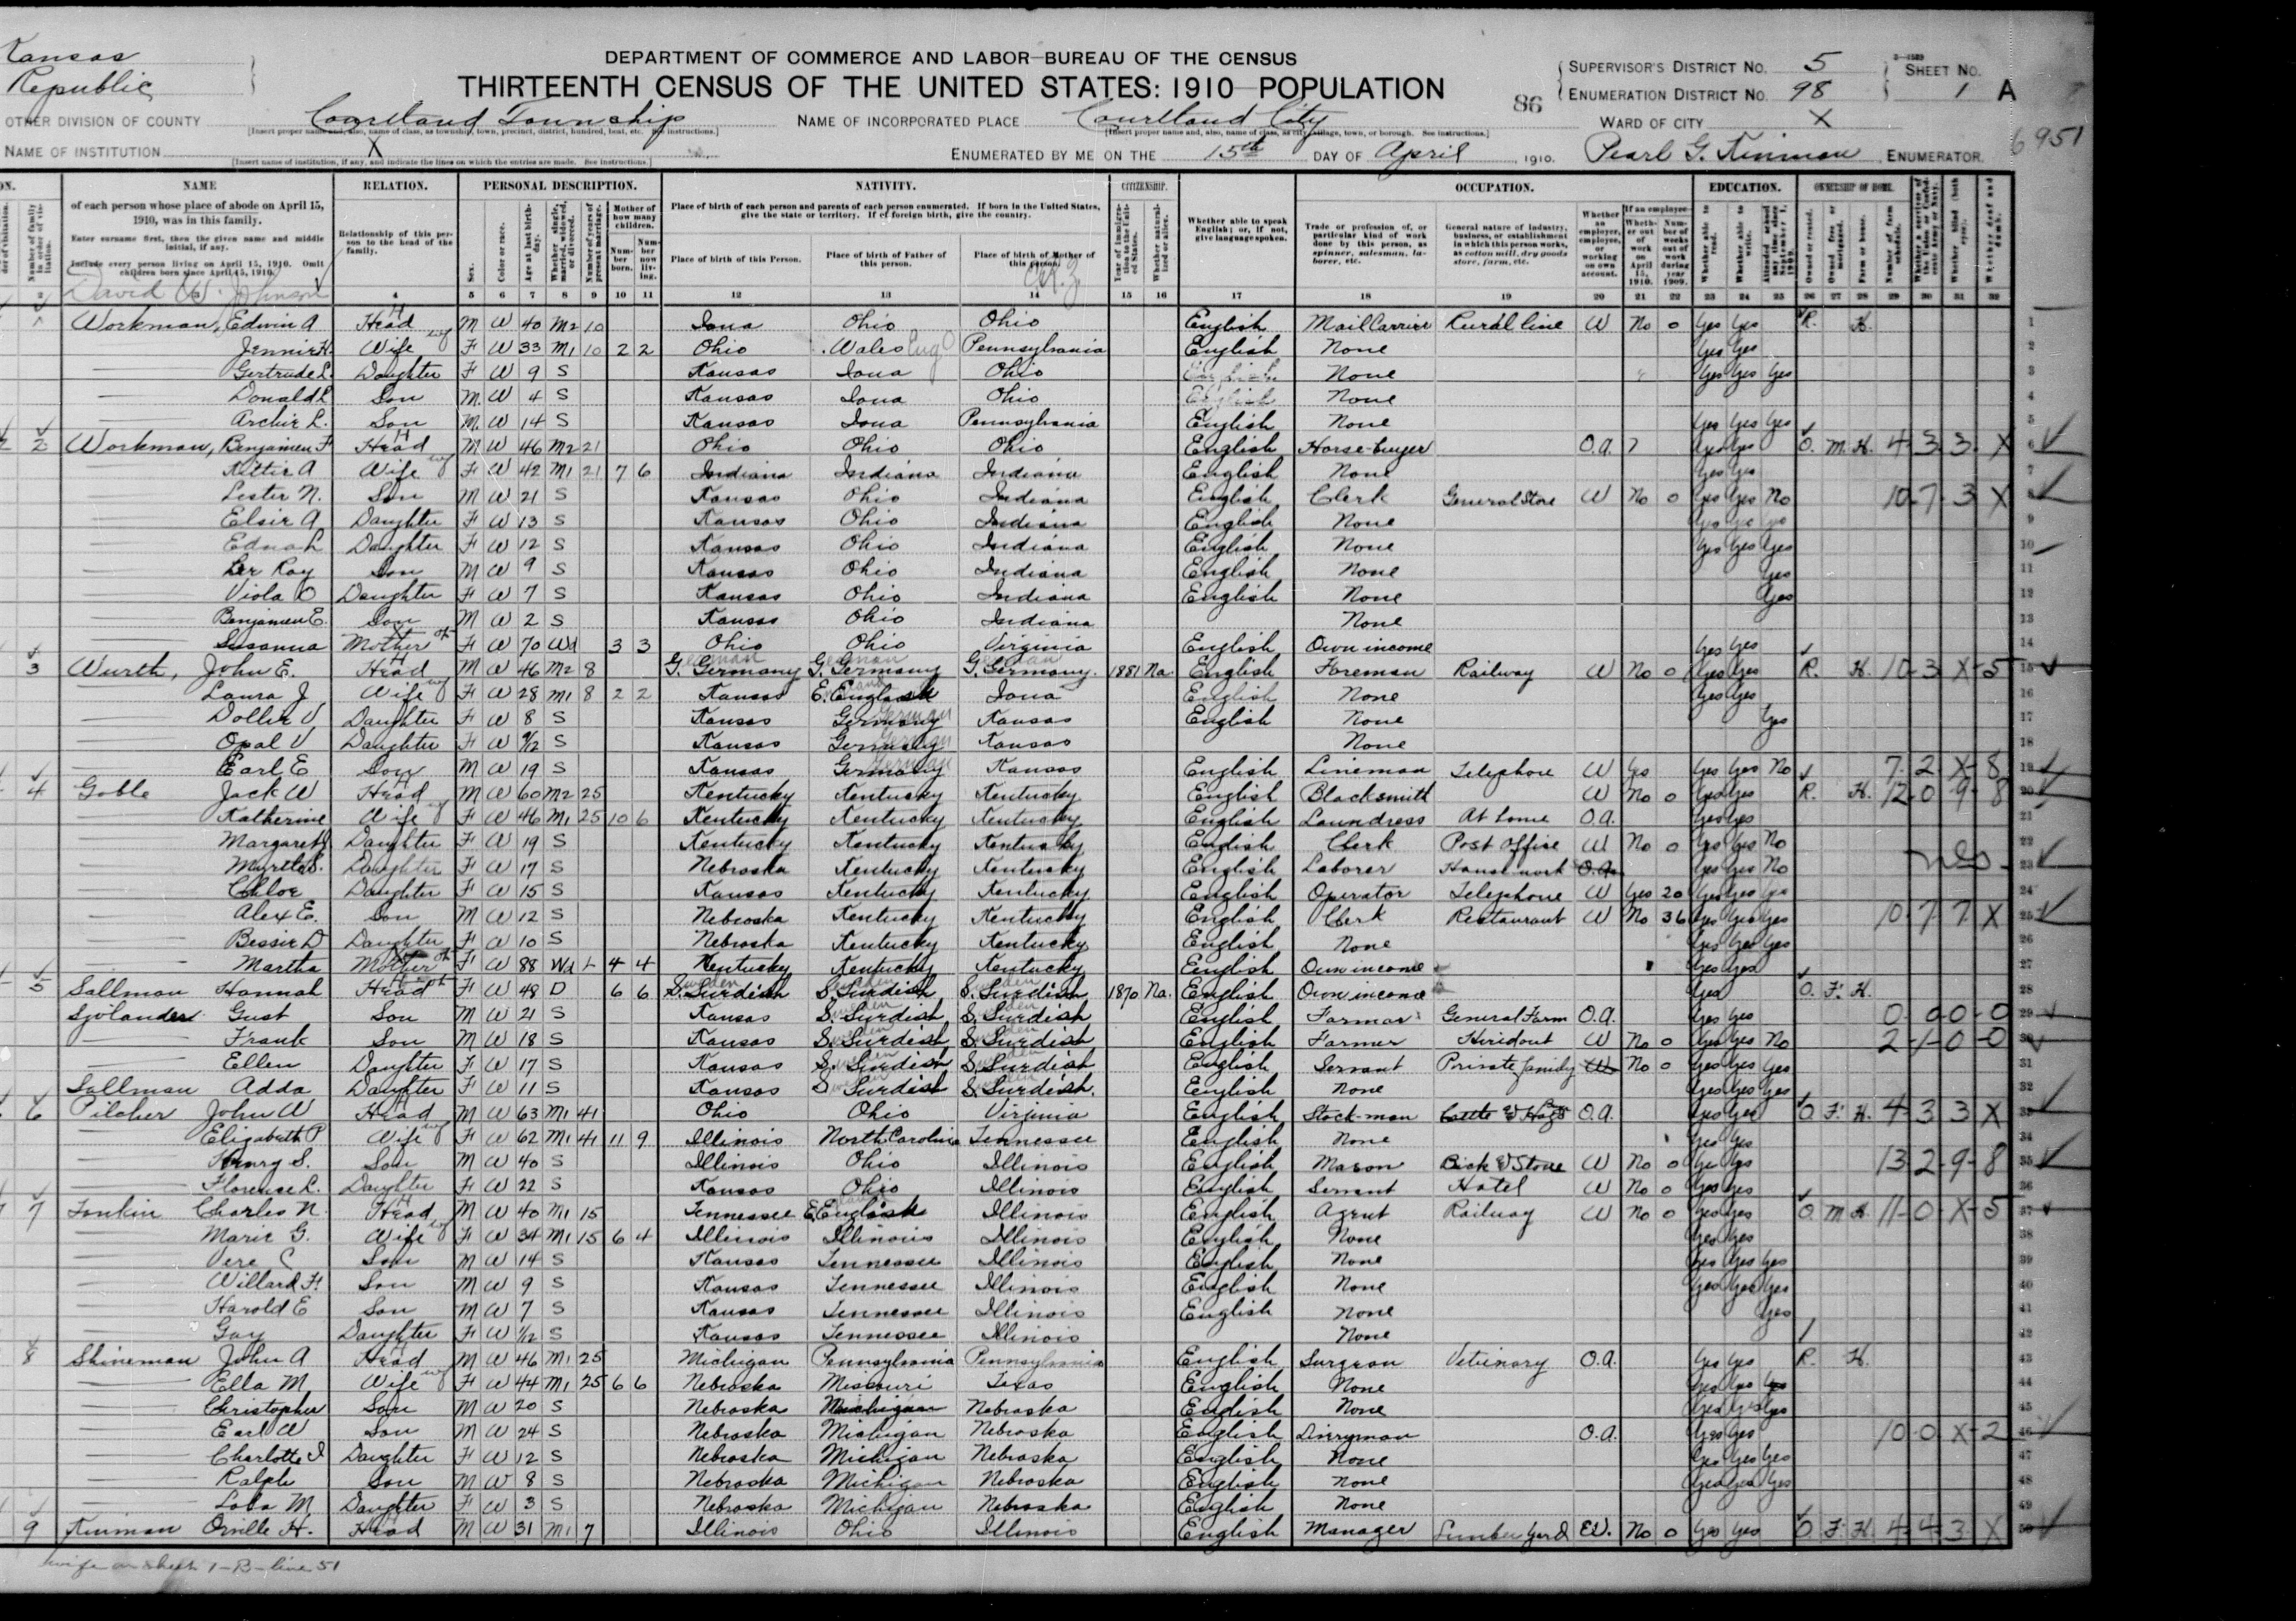 Kansas
Republic
DEPARTMENT OF COMMERCE AND LABOR—BUREAU OF THE CENSUS
THIRTEENTH CENSUS OF THE UNITED STATES: 1910—POPULATION
SUPERVISOR'S DISTRICT No. 5
ENUMERATION DISTRICT No. 98
SHEET No. 1 A
OTHER DIVISION OF COUNTY Courtland Township
NAME OF INCORPORATED PLACE Courtland City
86
WARD OF CITY X
6951
NAME OF INSTITUTION X
ENUMERATED BY ME ON THE 15th DAY OF April, 1910. Pearl G. Kinman, ENUMERATOR.
NAME RELATION. PERSONAL DESCRIPTION. NATIVITY. CITIZENSHIP. OCCUPATION. EDUCATION. OWNERSHIP OF HOME.
of each person whose place of abode on April 15, 1910, was in this family.
Enter surname first, then the given name and middle initial, if any.
Include every person living on April 15, 1910. Omit children born since April 15, 1910.
Relationship of this person to the head of the family.
Place of birth of each person and parents of each person enumerated. If born in the United States, give the state or territory. If of foreign birth, give the country.
Place of birth of this Person. Place of birth of Father of this person. Place of birth of Mother of this person.
Whether able to speak English; or, if not, give language spoken.
Trade or profession of, or particular kind of work done by this person, as spinner, salesman, laborer, etc.
General nature of industry, business, or establishment in which this person works, as cotton mill, dry goods store, farm, etc.
David W. Johnson
4 5 6 7 8 9 10 11 12 13 14 15 16 17 18 19 20 21 22 23 24 25 26 27 28 29 30 31 32
Workman, Edwin A Head M W 40 M2 10 Iowa Ohio Ohio English Mail Carrier Rural line W No 0 Yes Yes R. H. 1
Jennie H. Wife F W 33 M1 10 2 2 Ohio Wales Eng Pennsylvania English None Yes Yes 2
Gertrude L. Daughter F W 9 S Kansas Iowa Ohio English None Yes Yes Yes 3
Donald L Son M. W 4 S Kansas Iowa Ohio English None 4
Archie L. Son M. W 14 S Kansas Iowa Pennsylvania English None Yes Yes Yes 5
2 Workman, Benjamin F Head M W 46 M2 21 Ohio Ohio Ohio English Horse-buyer O.A. 7 Yes Yes O. M. H. 4-3-3-X 6
Kittie A Wife F W 42 M1 21 7 6 Indiana Indiana Indiana English None Yes Yes 7
Lester N. Son M W 21 S Kansas Ohio Indiana English Clerk General Store W No 0 Yes Yes No 10-7-3-X 8
Elsie A Daughter F W 13 S Kansas Ohio Indiana English None Yes Yes Yes 9
Edna L Daughter F W 12 S Kansas Ohio Indiana English None Yes Yes Yes 10
Lee Roy Son M W 9 S Kansas Ohio Indiana English None Yes 11
Viola O Daughter F W 7 S Kansas Ohio Indiana English None Yes 12
Benjamin E. Son M W 2 S Kansas Ohio Indiana None 13
Susanna Mother F W 70 Wd 3 3 Ohio Ohio Virginia English Own income Yes Yes 14
3 Wurth, John E. Head M W 46 M2 8 G. Germany G. Germany G. Germany. 1881 Na English Foreman Railway W No 0 Yes Yes R. H. 10-3-X-5 15
Laura J Wife F W 28 M1 8 2 2 Kansas E. English Iowa English None Yes Yes 16
Dollie V Daughter F W 8 S Kansas Germany Kansas English None Yes 17
Opal V Daughter F W 9/12 S Kansas Germany Kansas None 18
Earl E Son M W 19 S Kansas Germany Kansas English Lineman Telephone W Yes Yes Yes No 7-2-X-8 19
4 Goble Jack W Head M W 60 M2 25 Kentucky Kentucky Kentucky English Blacksmith W No 0 Yes Yes R. H. 12-0-9-8 20
Katherine Wife F W 46 M1 25 10 6 Kentucky Kentucky Kentucky English Laundress At home O.A. Yes Yes 21
Margaret J Daughter F W 19 S Kentucky Kentucky Kentucky English Clerk Post Office W No 0 Yes Yes No 22
Myrtle S. Daughter F W 17 S Nebraska Kentucky Kentucky English Laborer Housework O.A. Yes Yes No 23
Chloe Daughter F W 15 S Kansas Kentucky Kentucky English Operator Telephone W Yes 20 Yes Yes Yes 24
Alex E. Son M W 12 S Nebraska Kentucky Kentucky English Clerk Restaurant W No 36 Yes Yes Yes 10-7-7-X 25
Bessie D Daughter F W 10 S Nebraska Kentucky Kentucky English None Yes Yes Yes 26
Martha Mother F W 88 Wd 4 4 Kentucky Kentucky Kentucky English Own income Yes Yes 27
5 Sallman Hannah Head F W 48 D 6 6 S. Surdish S. Surdish S. Surdish 1870 Na. English Own income Yes O. F. H. 28
Sjolander Gust Son M W 21 S Kansas S. Surdish S. Surdish English Farmer General Farm O.A. Yes Yes 0-0-0-0 29
Frank Son M W 18 S Kansas S. Surdish S. Surdish English Farmer Hiredout W No 0 Yes Yes No 2-1-0-0 30
Ellen Daughter F W 17 S Kansas S. Surdish S. Surdish English Servant Private family W No 0 Yes Yes Yes 31
Sallman Adda Daughter F W 11 S Kansas S Surdish S. Surdish. English None Yes Yes Yes 32
6 Pilcher John W Head M W 63 M1 41 Ohio Ohio Virginia English Stock-man Cattle & Hogs O.A. Yes Yes O. F. H. 4-3-3-X 33
Elizabeth P Wife F W 62 M1 41 11 9 Illinois North Carolina Tennessee English None Yes Yes 34
Henry S. Son M W 40 S Illinois Ohio Illinois English Mason Bick & Stone W No 0 Yes Yes 13-2-9-8 35
Florence L. Daughter F W 22 S Kansas Ohio Illinois English Servant Hotel W No 0 Yes Yes 36
7 Tonkin Charles N. Head M W 40 M1 15 Tennessee E English Illinois English Agent Railway W No 0 Yes Yes O. M H. 11-0-X-5 37
Marie G. Wife F W 34 M1 15 6 4 Illinois Illinois Illinois English None Yes Yes 38
Vere C Son M W 14 S Kansas Tennessee Illinois English None Yes Yes Yes 39
Willard H. Son M W 9 S Kansas Tennessee Illinois English None Yes Yes Yes 40
Harold E Son M W 7 S Kansas Tennessee Illinois English None Yes 41
Gay Daughter F W 1/12 S Kansas Tennessee Illinois None 42
8 Shineman John A Head M W 46 M1 25 Michigan Pennsylvania Pennsylvania English Surgeon Vetrinary O.A. Yes Yes R. H. 43
Ella M Wife F W 44 M1 25 6 6 Nebraska Missouri Texas English None Yes Yes Yes 44
Christopher Son M W 20 S Nebraska Michigan Nebraska English None Yes Yes Yes 45
Earl W Son M W 24 S Nebraska Michigan Nebraska English Dairyman O.A. Yes Yes 10-0-X-2 46
Charlotte I Daughter F W 12 S Nebraska Michigan Nebraska English None Yes Yes Yes 47
Ralph Son M W 8 S Nebraska Michigan Nebraska English None Yes Yes Yes 48
Lola M Daughter F W 3 S Nebraska Michigan Nebraska English None 49
9 Kinman Orville H. Head M W 31 M1 7 Illinois Ohio Illinois English Manager Lumber Yard No 0 Yes Yes O. F. H. 4-4-3-X 50
wife on sheet 1-B-line 51